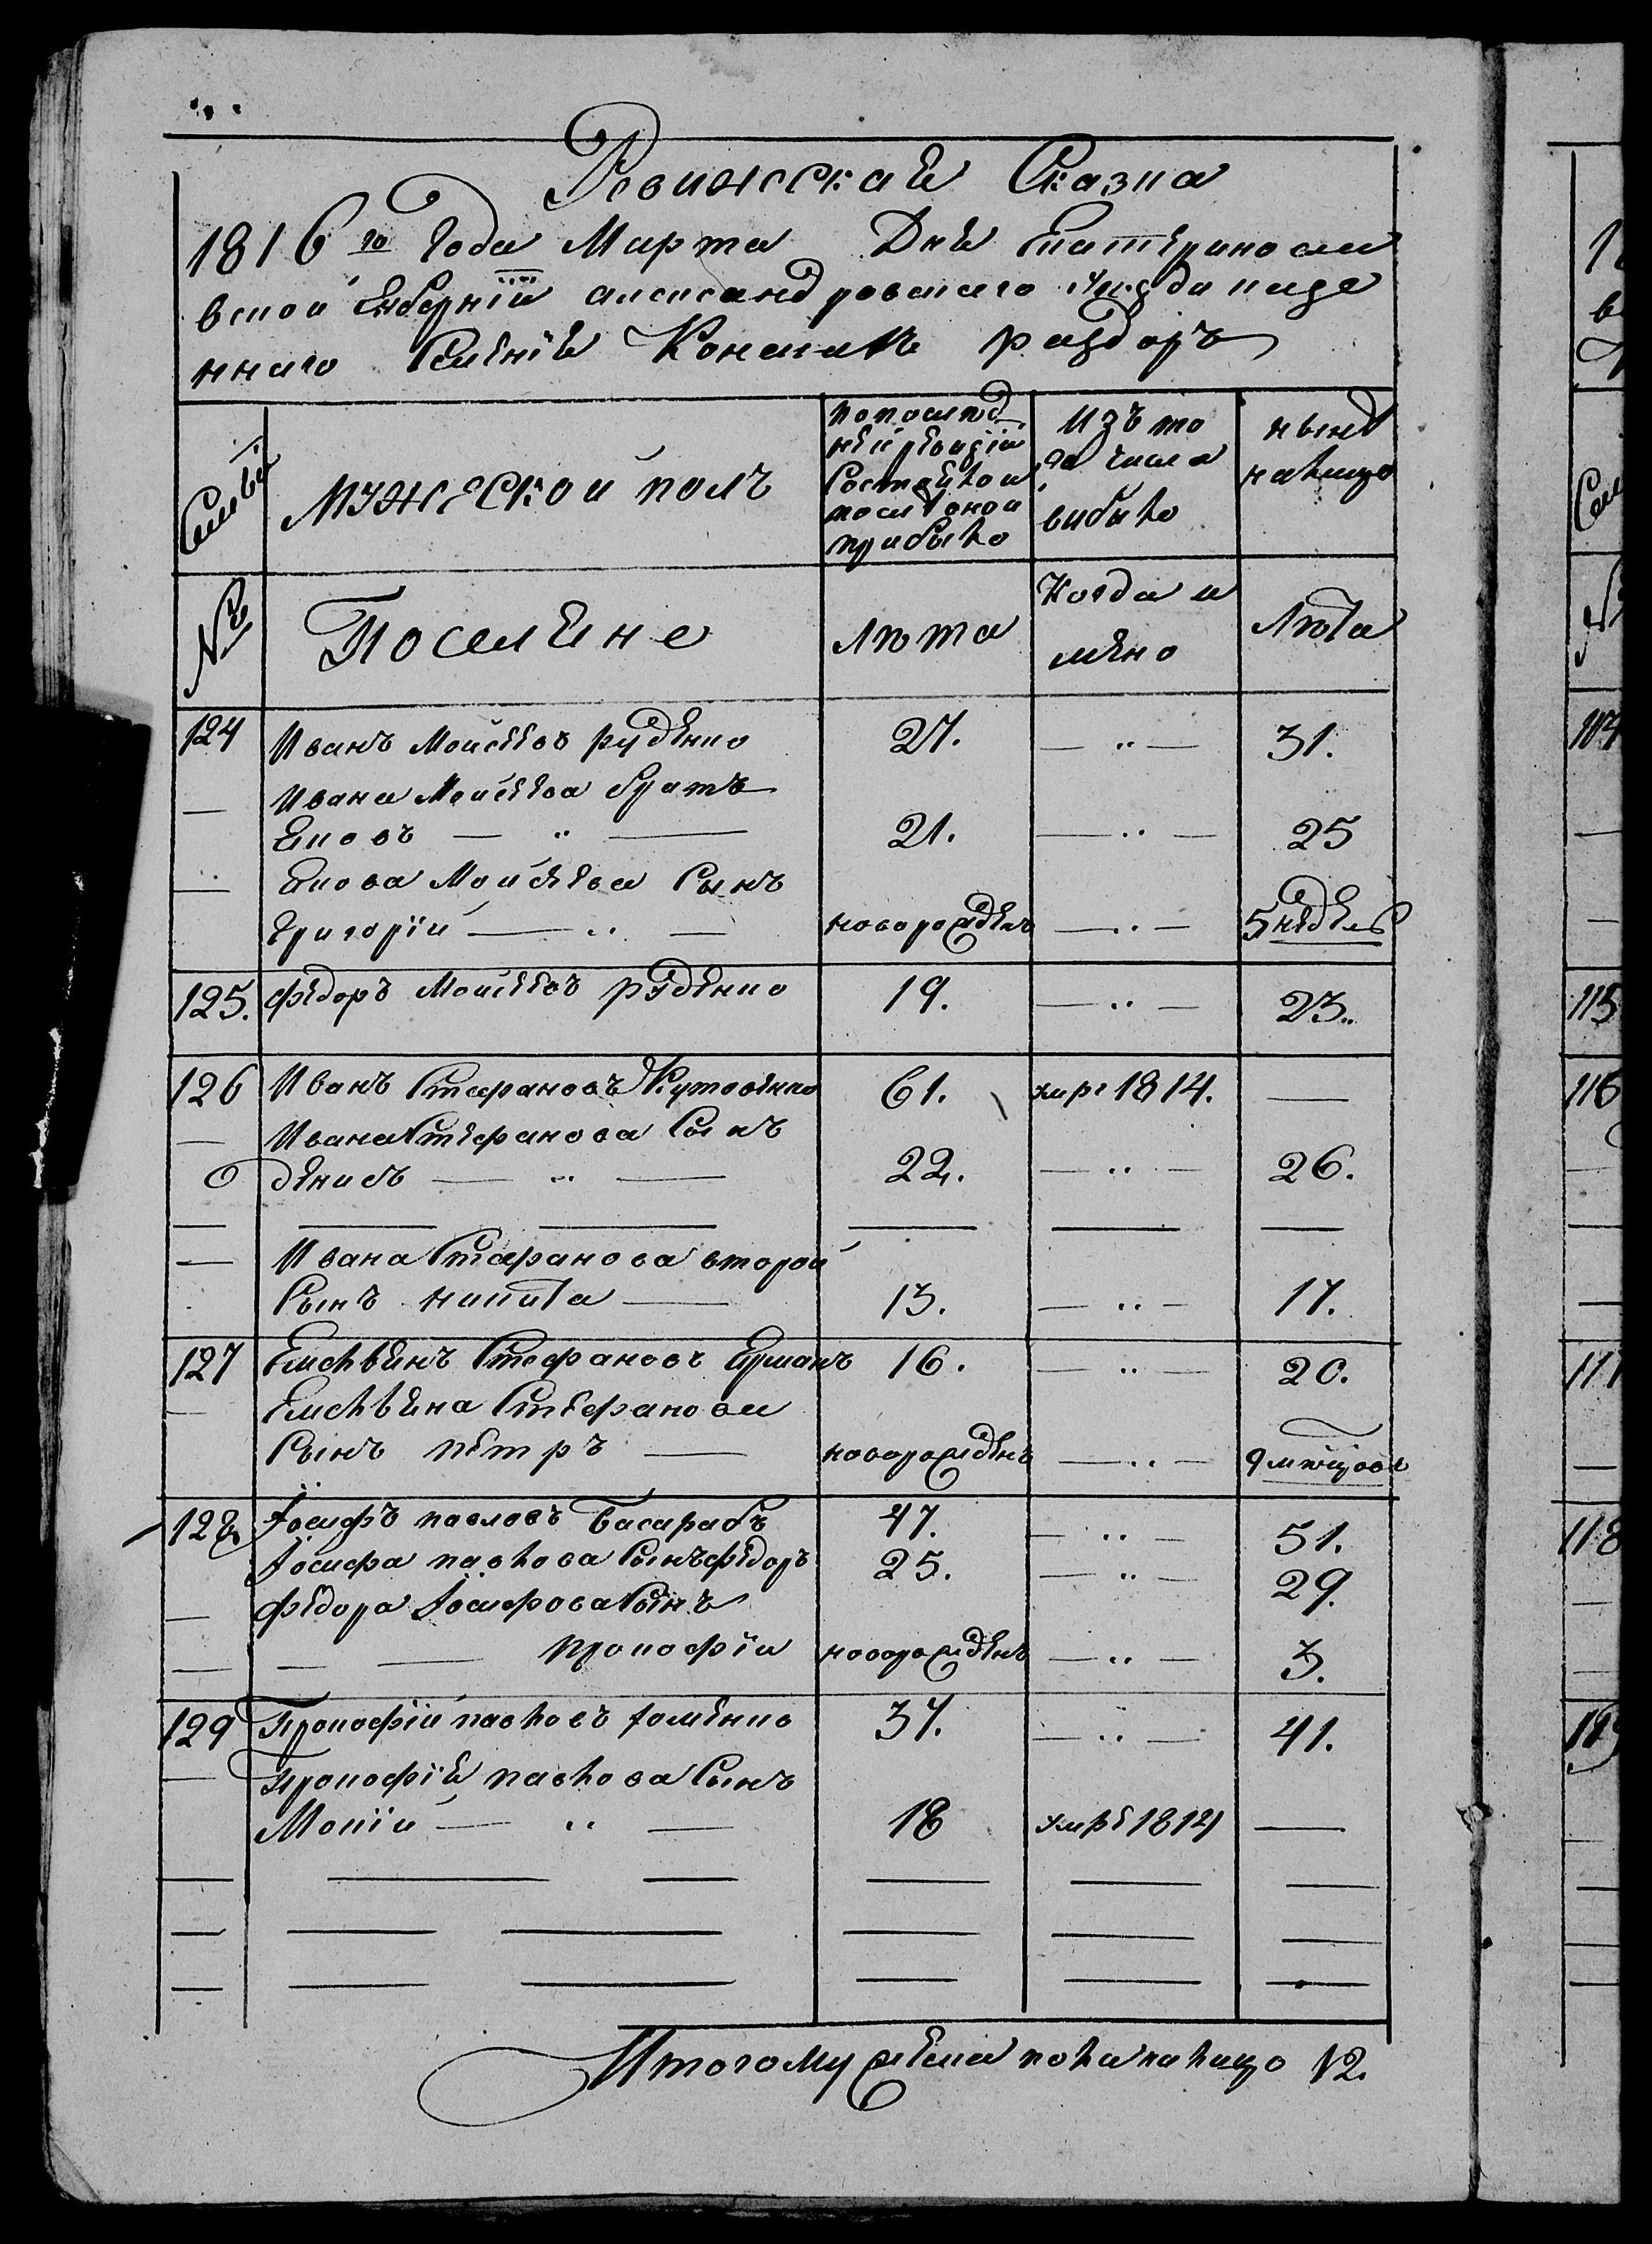 Ревижская Сказка
1816 го Года Марта Дня Екатеринosла
вской Губернiи александровскаго уезда казе
ннаго Селения Конскихъ раздоръ
Семьи
мужеской полъ
по послѣд
ней ревизiи
Состояло и
после оной
прибыло
Изъ то
го числа
выбыло
ныне
налицо
№
Поселяне
Лѣта
Когда и
имянно
Лѣта
124 Иванъ Мойсеевъ руденко 27. — " — 31.
— Ивана Мойсеева братъ
Яковъ — " — 21. — " — 25
— Якова Мойсеева Сынъ
Григорiй — " — новорожденъ — " — 5 недель
125. федоръ Мойсеевъ руденко 19. — " — 23.
126 Иванъ Стефановъ Кутовенко 61. умре 1814. —
— Ивана Стефанова Сынъ
денисъ — " — 22. — " — 26.
— Ивана Стефанова второй
Сынъ никита — 13. — " — 17.
127 Емельянъ Стефановъ Ерманъ 16. — " — 20.
— Емельяна Стефанова
Сынъ петръ — новорожденъ — " — 9 мѣсяцовъ
128. Iосифъ павловъ Басарабъ 47. — " — 51.
Iосифа павлова Сынъ федоръ 25. — " — 29.
— федора Iосифова Сынъ
— — — прокофiй новорожденъ — " — 3.
129 Прокофiй павловъ хоменко 37. — " — 41.
— Прокофiя павлова Сынъ
Мокiй — " — 18 умре 1814 —
Итого мужеска пола налицо 12.
11
115
116
118